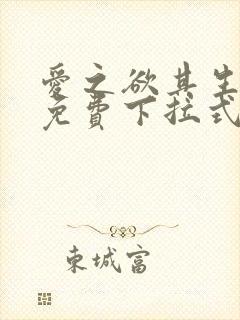 愛之欲其生
免費下拉式
東城富